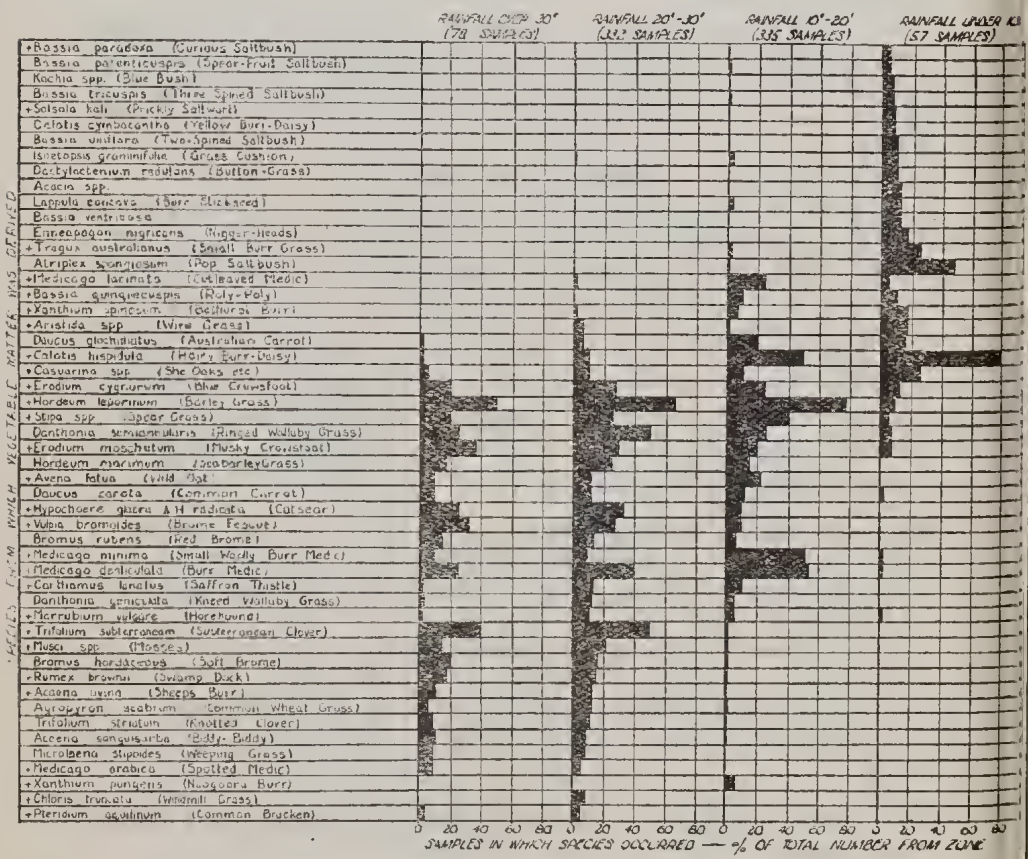 RAINFALL OVER 30" RAINFALL 20"-30" RAINFALL 10"-20" RAINFALL UNDER
(78 SAMPLES) (332 SAMPLES) (335 SAMPLES) (57 SAMPLES)
SPECIES FROM WHICH VEGETABLE MATTER WAS DERIVED
+Bassia paradoxa (Curious Saltbush)
Bassia patenticuspis (Spear-Fruit Saltbush)
Kochia spp. (Blue Bush)
Bassia tricuspis (Three Spined Saltbush)
+Salsola kali (Prickly Saltwort)
Calotis cymbacantha (Yellow Burr-Daisy)
Bassia uniflora (Two-Spined Saltbush)
Isoetopsis graminifolia (Grass Cushion)
Dactyloctenium radulans (Button-Grass)
Acacia spp.
Lappula concava (Burr Stickseed)
Bassia ventricosa
Enneapogon nigricans (Nigger-Heads)
+Tragus australianus (Small Burr Grass)
Atriplex spongiosum (Pop Saltbush)
+Medicago laciniata (Cutleaved Medic)
+Bassia quinquecuspis (Roly-Poly)
+Xanthium spinosum (Bathurst Burr)
+Aristida spp (Wire Grass)
Daucus glochidiatus (Australian Carrot)
+Calotis hispidula (Hairy Burr-Daisy)
+Casuarina spp (She Oaks etc)
+Erodium cygnorum (Blue Crowsfoot)
+Hordeum leporinum (Barley Grass)
+Stipa spp (Spear Grass)
Danthonia semiannularis (Ringed Wallaby Grass)
+Erodium moschatum (Musky Crowsfoot)
Hordeum marinum (SeabarleyGrass)
+Avena fatua (Wild Oat)
Daucus carota (Common Carrot)
+Hypochoere glabra & H radicata (Catsear)
+Vulpia bromoides (Brome Fescue)
Bromus rubens (Red Brome)
+Medicago minima (Small Woolly Burr Medic)
+Medicago denticulata (Burr Medic)
+Carthamus lanatus (Saffron Thistle)
Danthonia geniculata (Kneed Wallaby Grass)
+Marrubium vulgare (Horehound)
+Trifolium subterraneam (Subterranean Clover)
+Musci spp (Mosses)
Bromus hordaceous (Soft Brome)
+Rumex brownii (Swamp Dock)
+Acaena ovina (Sheeps Burr)
Agropyron scabrum (Common Wheat Grass)
Trifolium striatum (Knotted Clover)
Acaena sanguisorba (Biddy-Biddy)
Microlaena stipoides (Weeping Grass)
+Medicago arabica (Spotted Medic)
+Xanthium pungens (Noogoora Burr)
+Chloris truncata (Windmill Grass)
+Pteridium aquilinum (Common Bracken)
0 20 40 60 80 0 20 40 60 80 0 20 40 60 80 0 20 40 60 80
SAMPLES IN WHICH SPECIES OCCURRED — % OF TOTAL NUMBER FROM ZONE